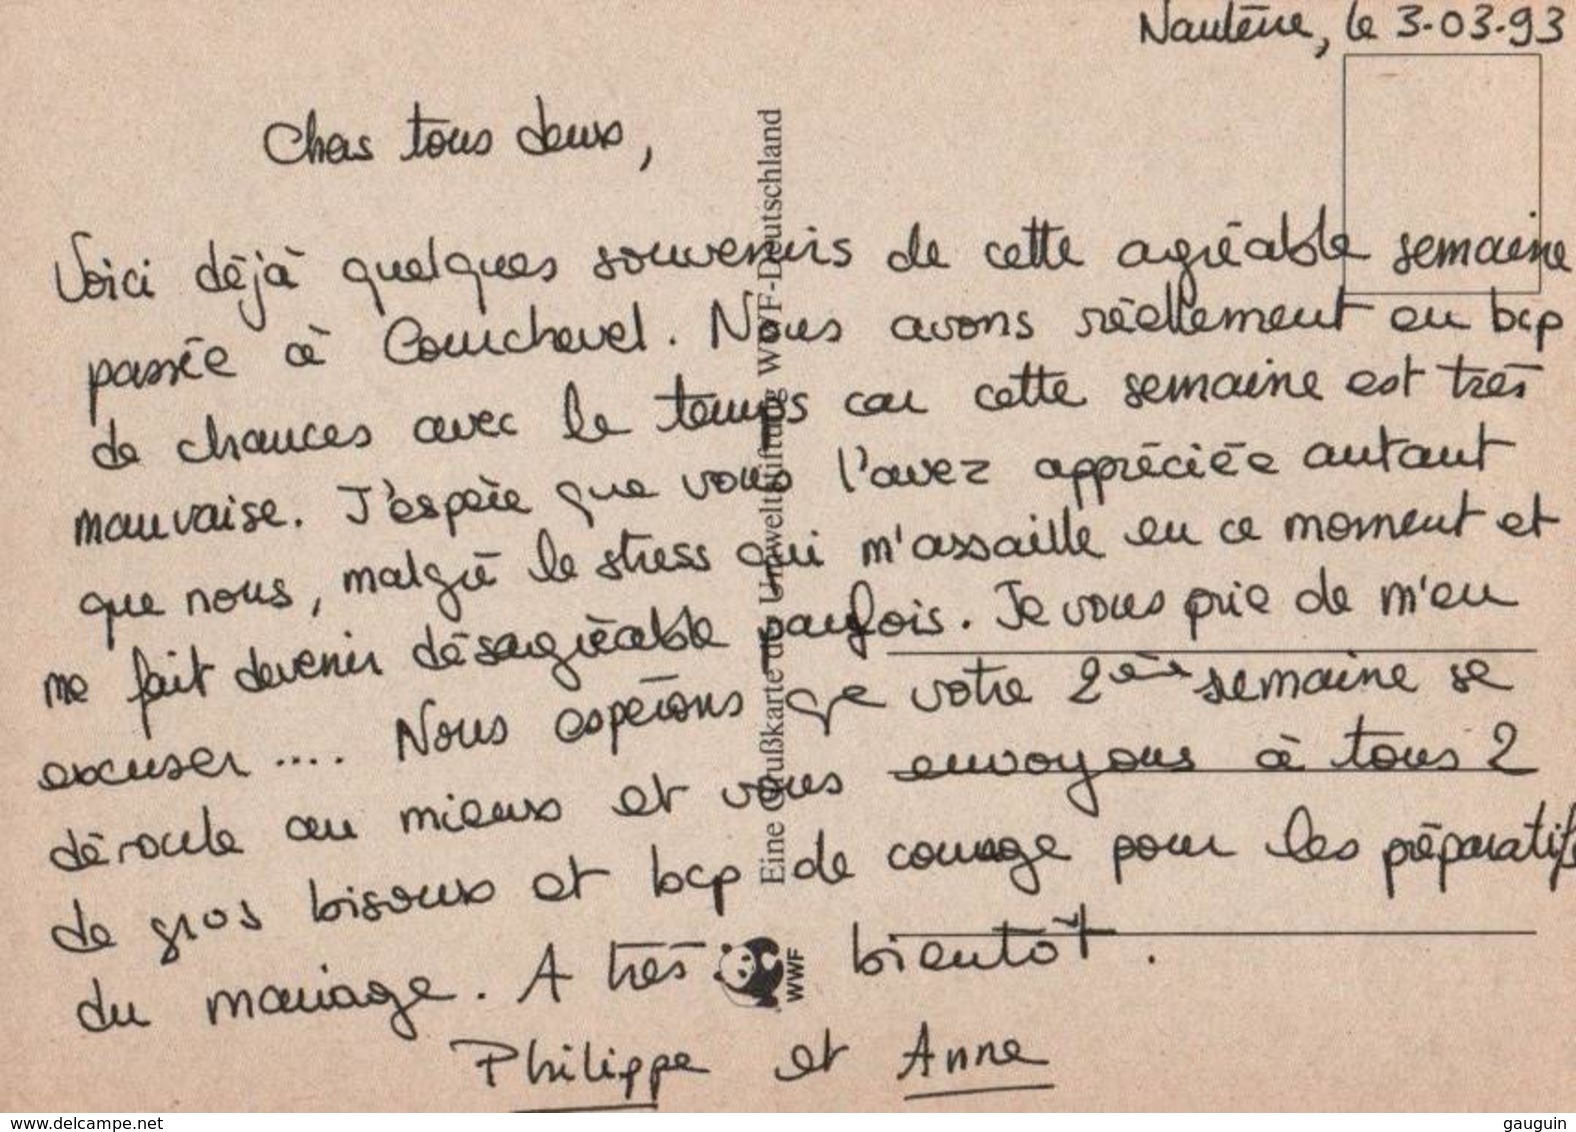 Nanterre, le 3-03-93
Chers tous deux,
Voici déjà quelques souvenirs de cette agréable semaine
passée à Courchevel. Nous avons réellement eu bcp
de chances avec le temps car cette semaine est très
mauvaise. J'espère que vous l'avez appréciée autant
que nous, malgré le stress qui m'assaille en ce moment et
me fait devenir désagréable parfois. Je vous prie de m'en
excuser .... Nous espérons que votre 2ème semaine se
déroule au mieux et vous envoyons à tous 2
de gros bisoux et bcp de courage pour les préparatifs
du mariage. A très bientôt.
Philippe et Anne
Eine Grußkarte der Umweltstiftung WWF-Deutschland
WWF
www.delcampe.net
gauguin